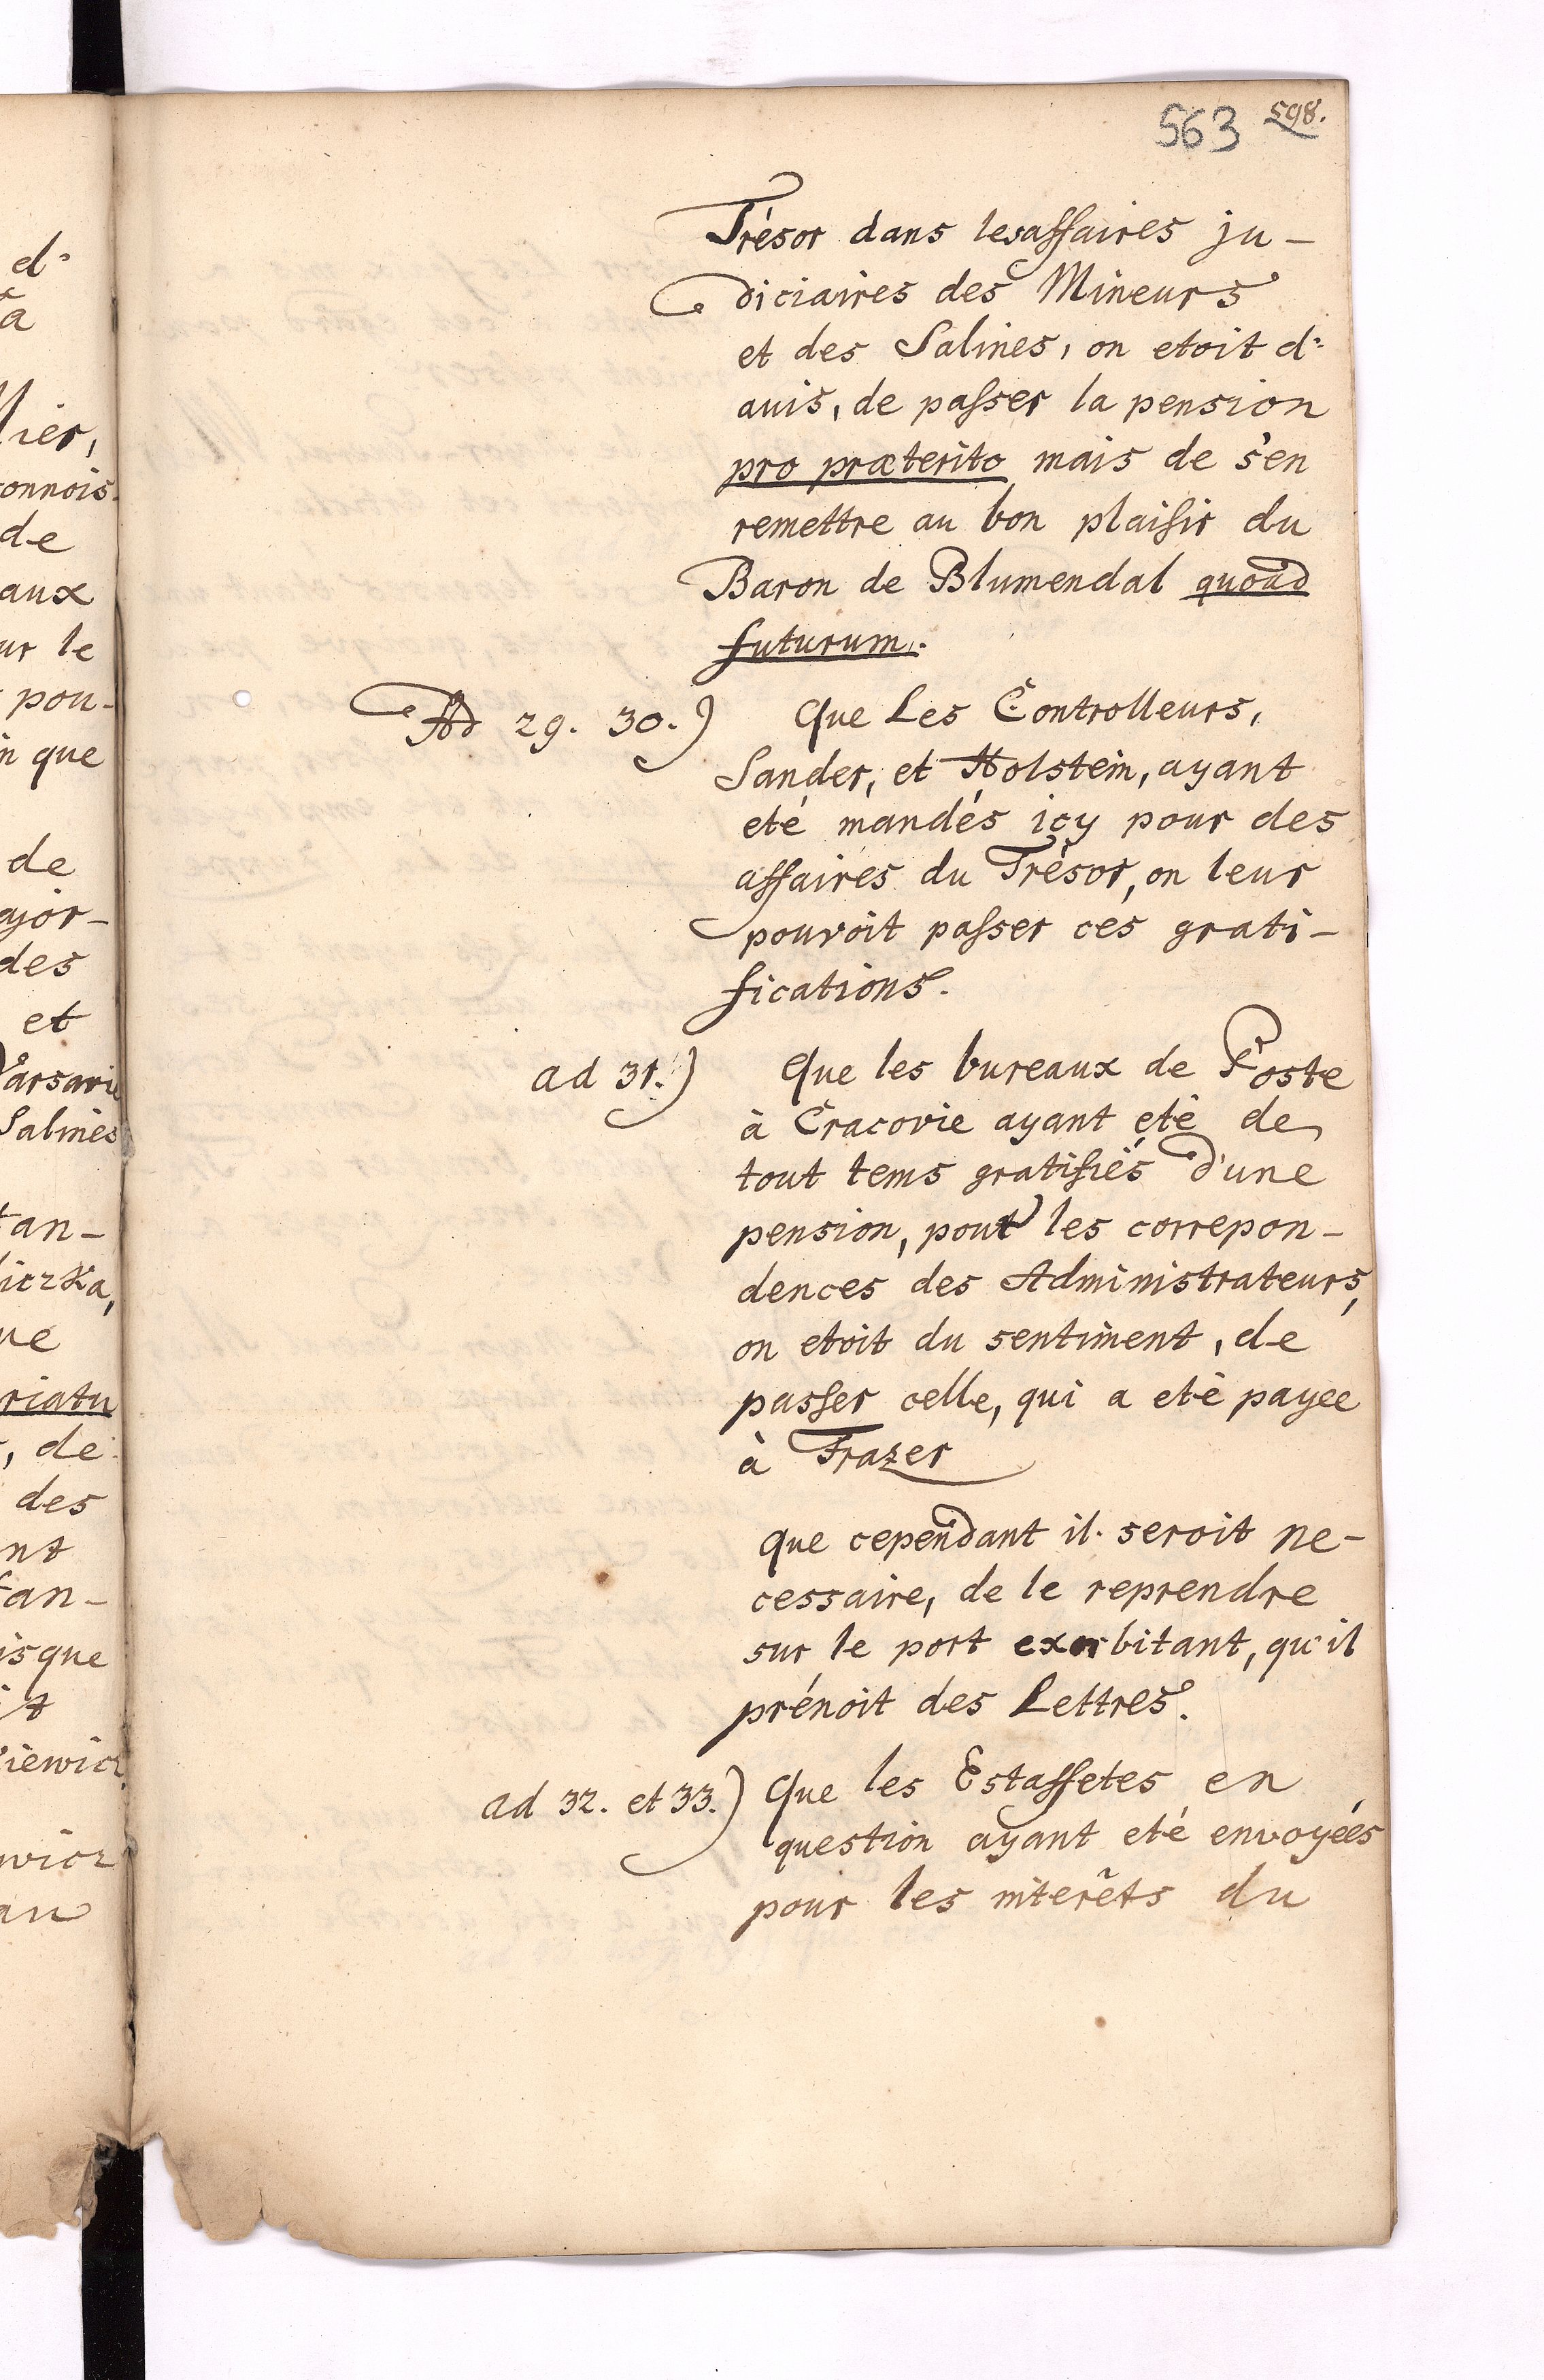 563 598.
Trésor dans les affaires ju-
diciaires des Mineurs
et des Salines, on etoit d'
avis, de passer la pension
pro præterito mais de s'en
remettre au bon plaisir du
Baron de Blumendal quoad
futurum.
Ad 29. 30.) Que Les Controlleurs,
Sander, et Holstein, ayant
eté mandés icy pour des
affaires du Trésor, on leur
pouvoit passer ces grati-
fications.
ad 31.) Que les bureaux de Poste
à Cracovie ayant eté de
tout tems gratifiés d'une
pension, pour les correpon-
dences des Administrateurs,
on etoit du sentiment, de
passer celle, qui a eté payee
à Frazer
que cependant il seroit ne-
cessaire, de le reprendre
sur le port exorbitant, qu'il
prénoit des Lettres.
ad 32. et 33.) Que les Estaffetes en
question ayant eté envoyées
pour les interêts du
d'
a
ier,
connois
de
aux
ur le
pou-
in que
de
ajor-
des
et
arsavie
Salines
tan-
liczka,
ue
riatu
, de
des
nt
fan-
isque
it
iewicz
wicz
au